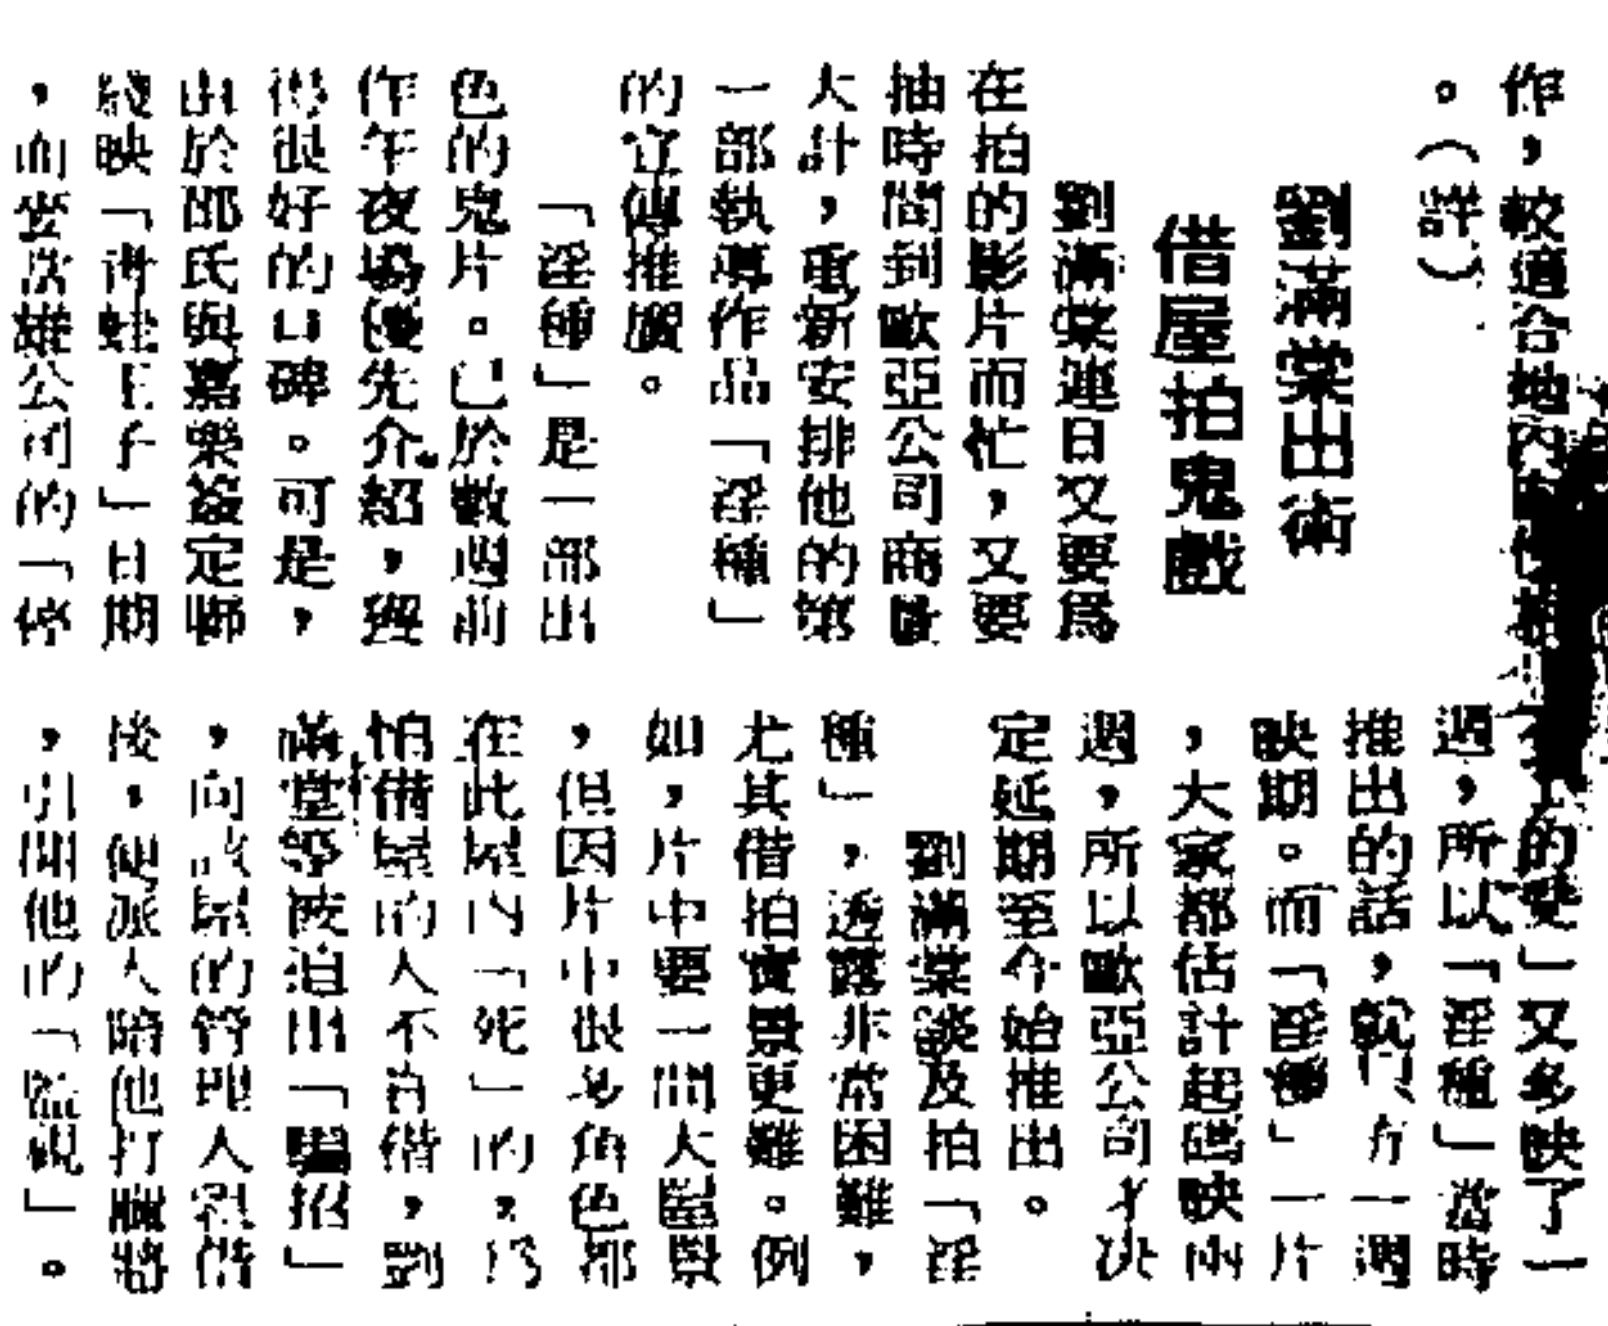 作，較適合她內
。（詳）
劉滿棠出術
借屋拍鬼戲
劉滿棠連日又要爲
在拍的影片而忙，又要
抽時間到歐亞公司商量
大計，重新安排他的第
一部執導作品「淫種」
的宣傳推廣。
「淫種」是一部出
色的鬼片。已於數週前
作午夜場優先介紹，獲
得很好的口碑。可是，
由於邵氏與嘉樂簽定聯
綫映「青蛙王子」日期
，而麥次雄公司的「停
的愛」又多映了一
週，所以「淫種」當時
推出的話，就只有一週
映期。而「淫種」一片
，大家都估計起碼映兩
週，所以歐亞公司才決
定延期至今始推出。
劉滿棠談及拍「淫
種」，透露非常困難，
尤其借拍實景更難。例
如，片中要一間大屋景
，但因片中很多角色都
在此屋內「死」的，乃
怕借屋的人不肯借，劉
滿堂等被迫出「騙招」
，向該屋的管理人租借
後，便派人陪他打麻將
，引開他的「監視」。